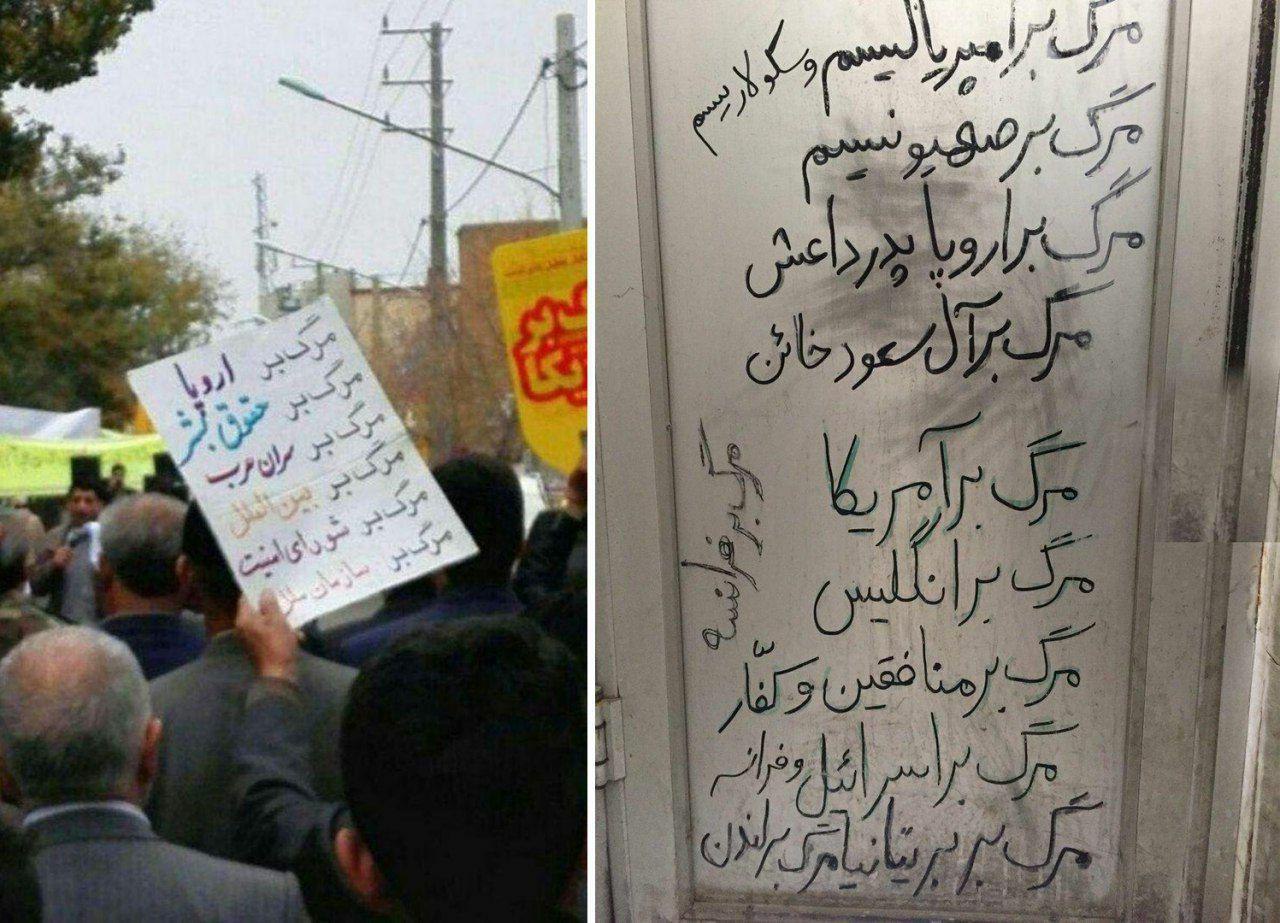 مرگ بر اروپا
مرگ بر حقوق بشر
مرگ بر سران عرب
مرگ بر بین الملل
مرگ بر شورای امنیت
مرگ بر سازمان ملل
مرگ بر امپریالیسم و سکولاریسم
مرگ بر صهیونیسم
مرگ بر اروپا پدر داعش
مرگ بر آل سعود خائن
مرگ بر آمریکا
مرگ بر فرانسه
مرگ بر انگلیس
مرگ بر منافقین و کفّار
مرگ بر اسرائیل و فرانسه
مرگ بر بریتانیا مرگ بر لندن